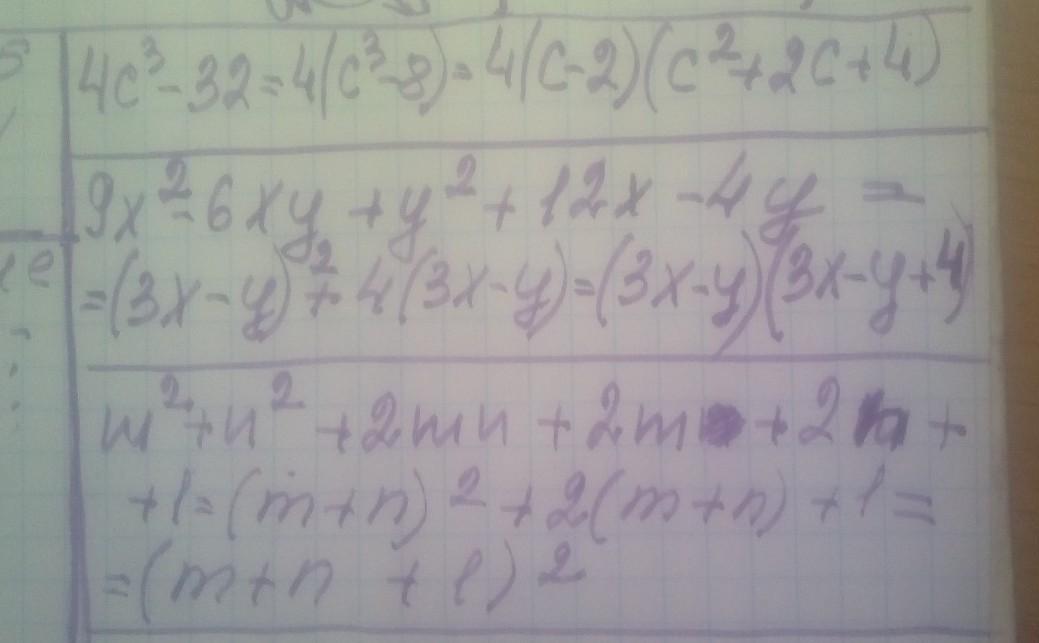 4c³-32=4(c³-8)=4(c-2)(c²+2c+4)
9x²-6xy+y²+12x-4y=
=(3x-y)²+4(3x-y)=(3x-y)(3x-y+4)
m²+n²+2mn+2m+2n+
+1=(m+n)²+2(m+n)+1=
=(m+n+1)²